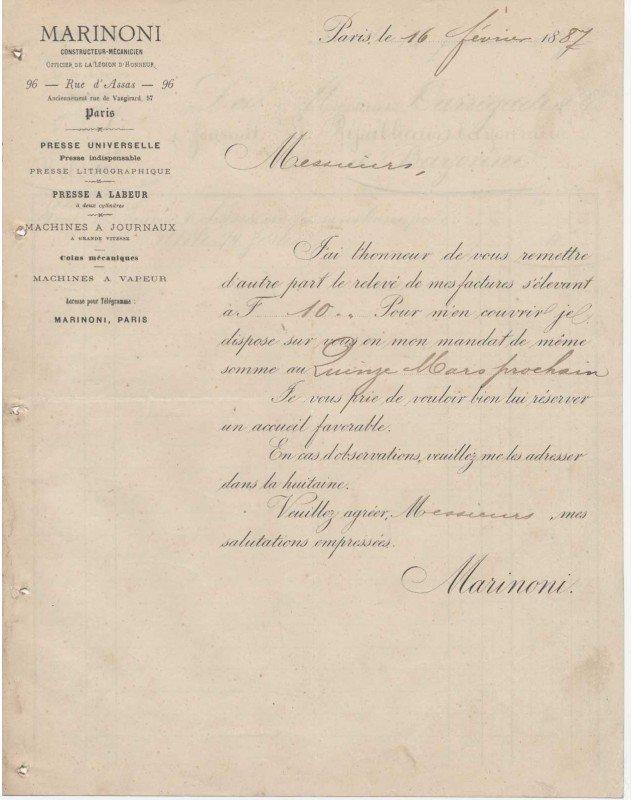 MARINONI
CONSTRUCTEUR-MÉCANICIEN
OFFICIER DE LA LÉGION D'HONNEUR
96 — Rue d'Assas — 96
Anciennement rue de Vaugirard, 57
Paris
PRESSE UNIVERSELLE
Presse indispensable
PRESSE LITHOGRAPHIQUE
PRESSE A LABEUR
à deux cylindres
MACHINES A JOURNAUX
A GRANDE VITESSE
Coins mécaniques
MACHINES A VAPEUR
Adresse pour Télégramme :
MARINONI, PARIS
Paris, le 16 février 1887
Messieurs,
J'ai l'honneur de vous remettre
d'autre part le relevé de mes factures s'élevant
à F. 10 .. Pour m'en couvrir je
dispose sur vous en mon mandat de même
somme au Quinze Mars prochain
Je vous prie de vouloir bien lui réserver
un accueil favorable.
En cas d'observations, veuillez me les adresser
dans la huitaine.
Veuillez agréer, Messieurs, mes
salutations empressées.
Marinoni.